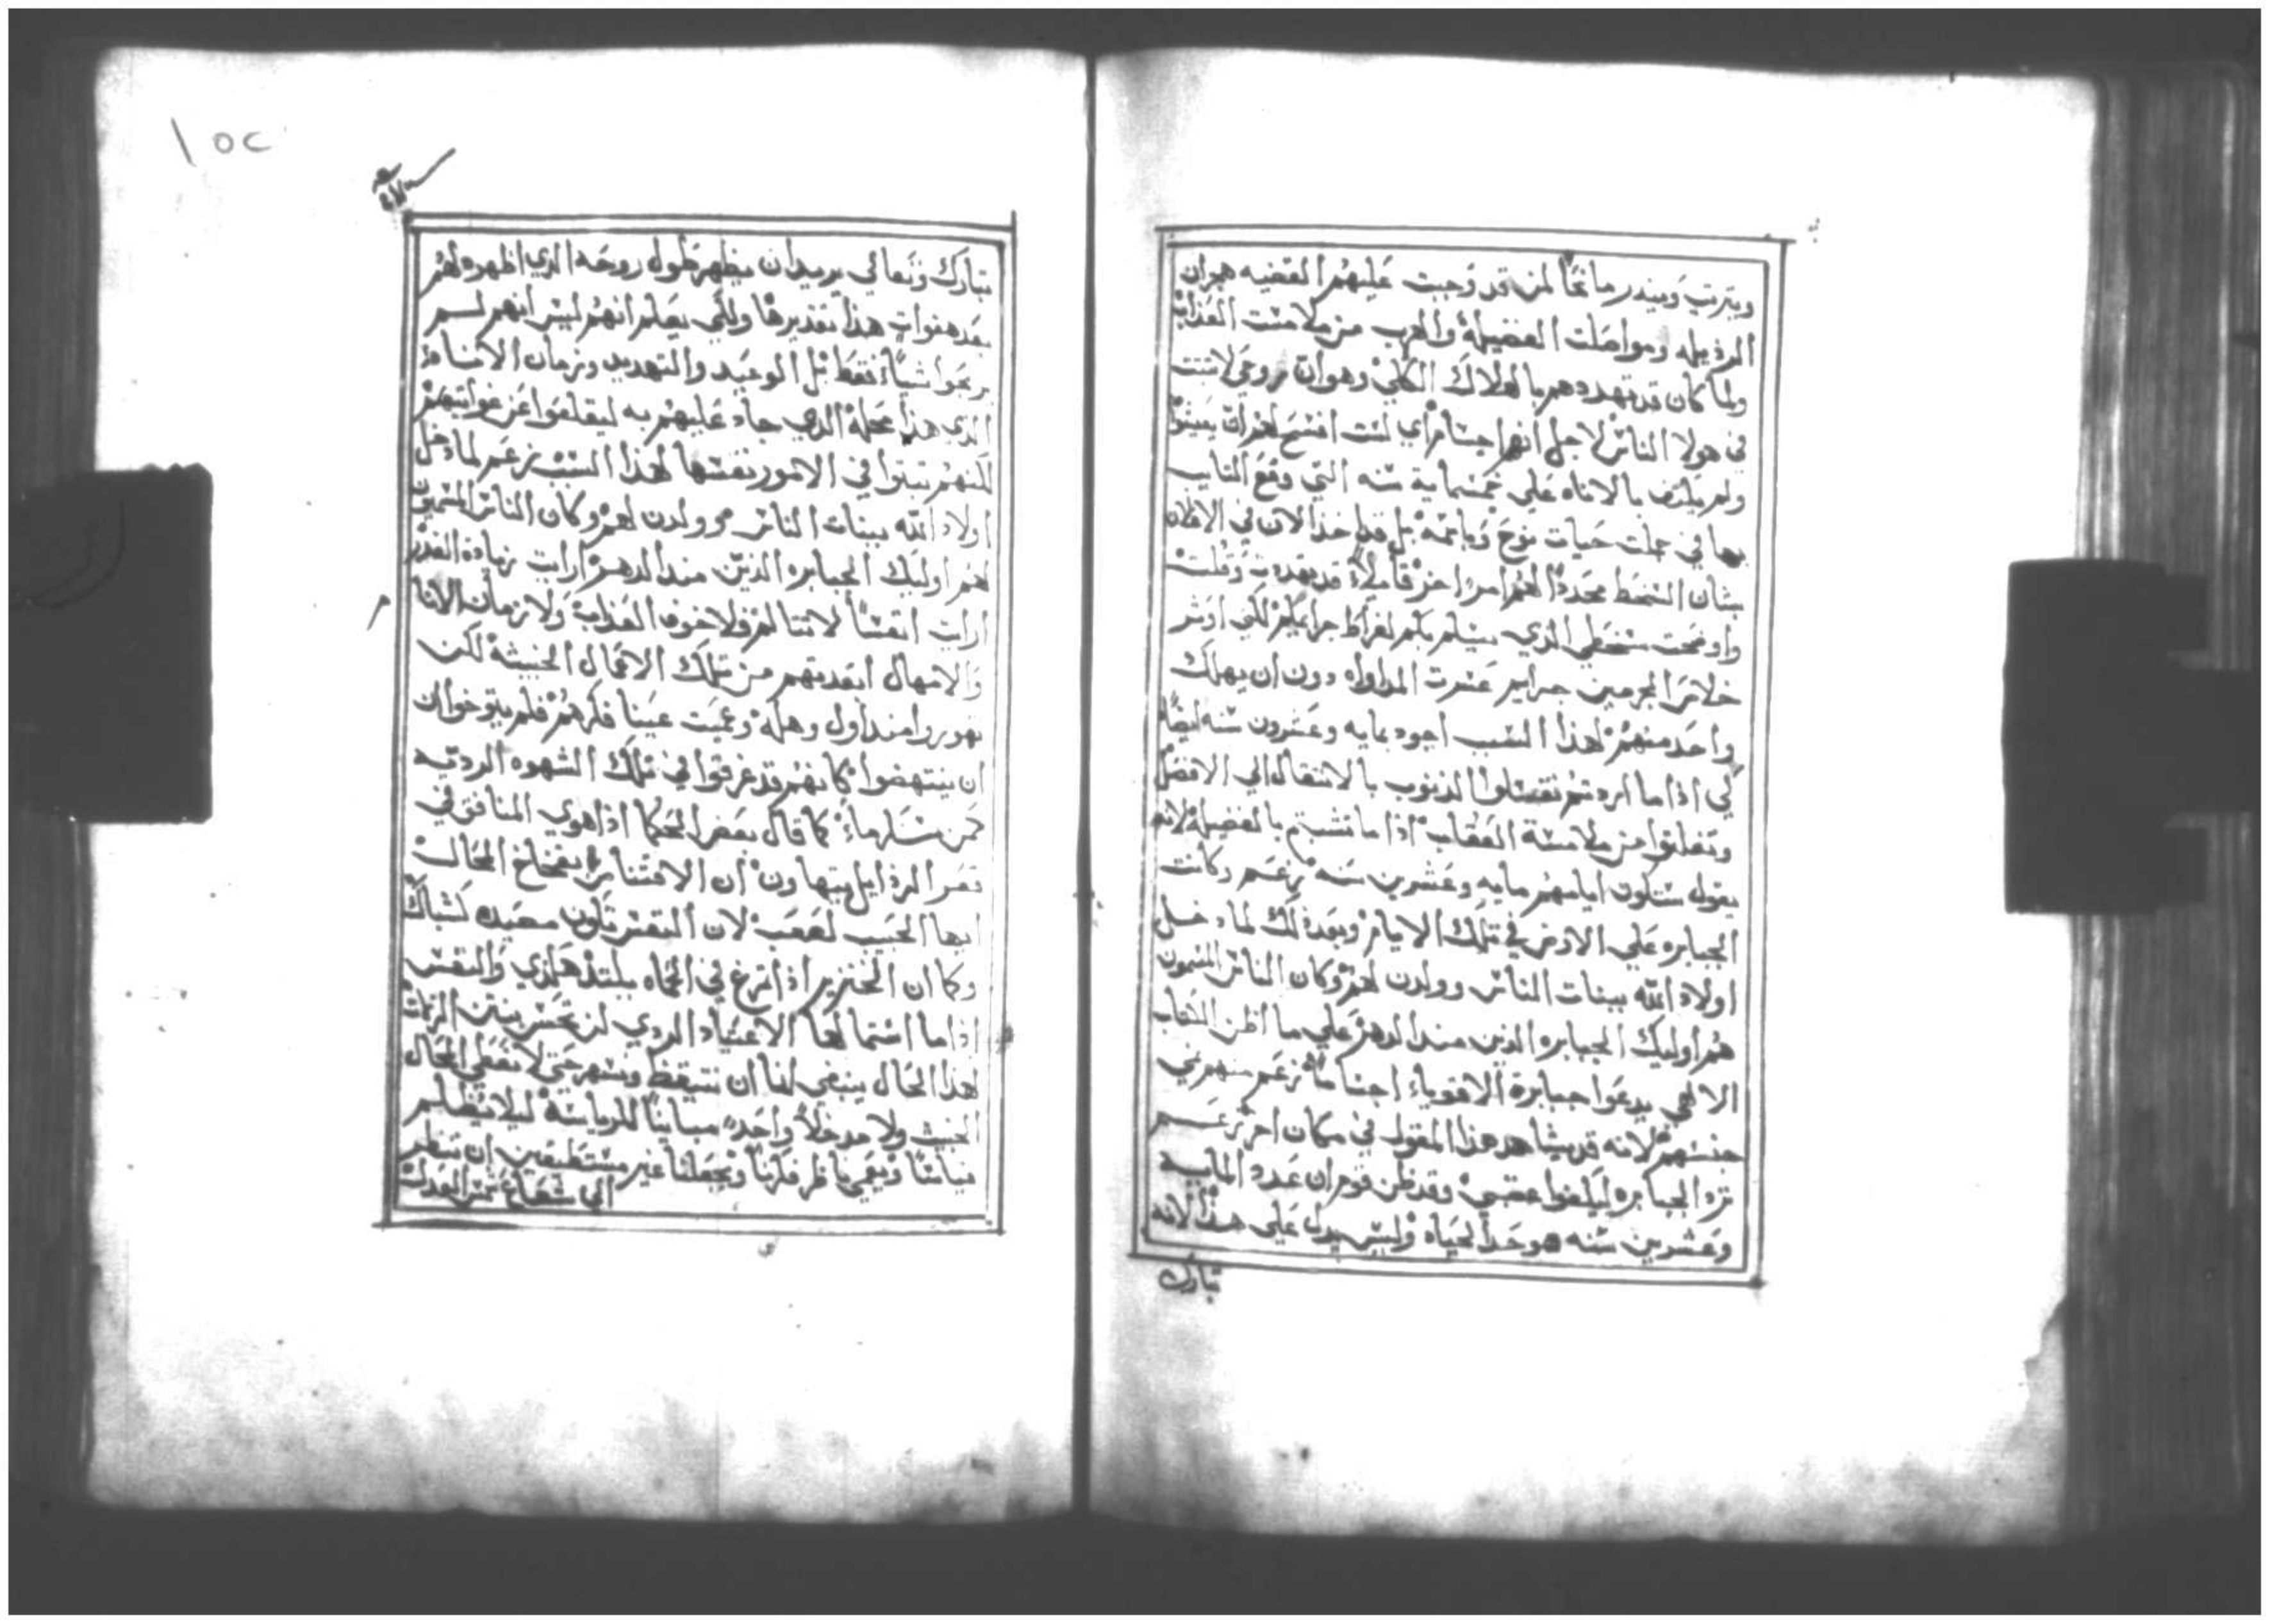 ويتربث وينذر مانحًا لمن قد وجبت عليهم القضيه هجران
الرذيله ومواصلت الفضيلة والهرب من ملامست العذاب
ولما كان قد تهددهم بالهلاك الكلي وهو ان روحي لا تثبت
في هولا الناس لاجل انهم اجسام اي لست افسح لهم ان يعيشوا
ولم يكتف بالاناه علي خمسمايه سنه التي
بها في جملت حيات نوح بل قد اخذ الان في
بشان السخط مجددًا لهم امرًا اخر قايلاً قد تهددت وقلت
واوضحت سخطي الذي سيلم بكم لفراط جرايمكم لكني اوثر
خلاص المجرمين جرايم عسرت المداواه دون ان يهلك
واحد منهم لهذا السبب اجود بمايه وعشرون سنه ايضًا
لكي اذا ما اردتم تغتسلوا الذنوب بالانتقال الي الافضل
وتفلتوا من ملامسة العقاب اذا ما تشبتم بالفضيلة لانه
يقول ستكون ايامهم مايه وعشرين سنه زعم وكانت
الجبابره علي الارض في تلك الايام وبعد ذلك لما دخل
اولاد الله ببنات الناس وولدن لهم وكان الناس المسمون
هم اوليك الجبابره الذين منذ الدهر علي ما اظن الكتاب
الالهي يدعوا جبابرة الاقوياء اجسامًا زعم منهم ني
جنسهم لانه قد يشاهد هذا المقول في مكان اخر زعم
ترد الجبابره ليكفوا غضبي وقد ظن قوم ان عدد المايه
وعشرين سنه هو حد الحياه وليس يدل علي هذا لانه
تبارك
١٥٢
تبارك وتعالي يريد ان يظهر طول روحه الذي اظهره لهم
بعد هفوات هذا تقديرها ولكي يعلم انهم ليس انهم لم
يربحوا شيًا فقط بل الوعيد والتهديد وزمان الاناه
الذي هذا محله الذي جاد عليهم به ليقلعوا عن غوايتهم
لكنهم ثبتوا في الامور نفسها لهذا السبب زعم لما دخل
اولاد الله ببنات الناس وولدن لهم وكان الناس المسمون
هم اوليك الجبابره الذين منذ الدهر ارايت زيادة الغدر
ارايت انفسًا لا تتالم فلا خوف العذاب ولا زمان الاناه
والامهال ابعدتهم من تلك الاعمال الخبيثة لكن
تهوروا منذ اول وهلة وعميت عينا فكرهم فلم يتوخوا ان
ان ينتهضوا كانهم قد غرقوا في تلك الشهوه الرديه
كما قال بعض الحكما اذا هوي المنافق في
قعر الرذايل يتهاون ان الاقتناص بفخاخ المحال
ايها الحبيب لصعب لان النفس تكون مصيده كشباك
وكما ان الخنزير اذا تمرغ في الحماه يلتذ هكذي والنفس
اذا ما استمالها الاعتياد الردي لن تحس بنتن الزلات
لهذا الحال ينبغي لنا ان نتيقظ ونسهر حتي لا نعطي المحال
الخبيث ولا مدخلاً واحدًا مباينًا للرياسة ليلا يظلم
قياسنا ويعمي ناظر فكرنا ويجعلنا غير مستطيعين ان ننظر
الي شعاع شمس العدل